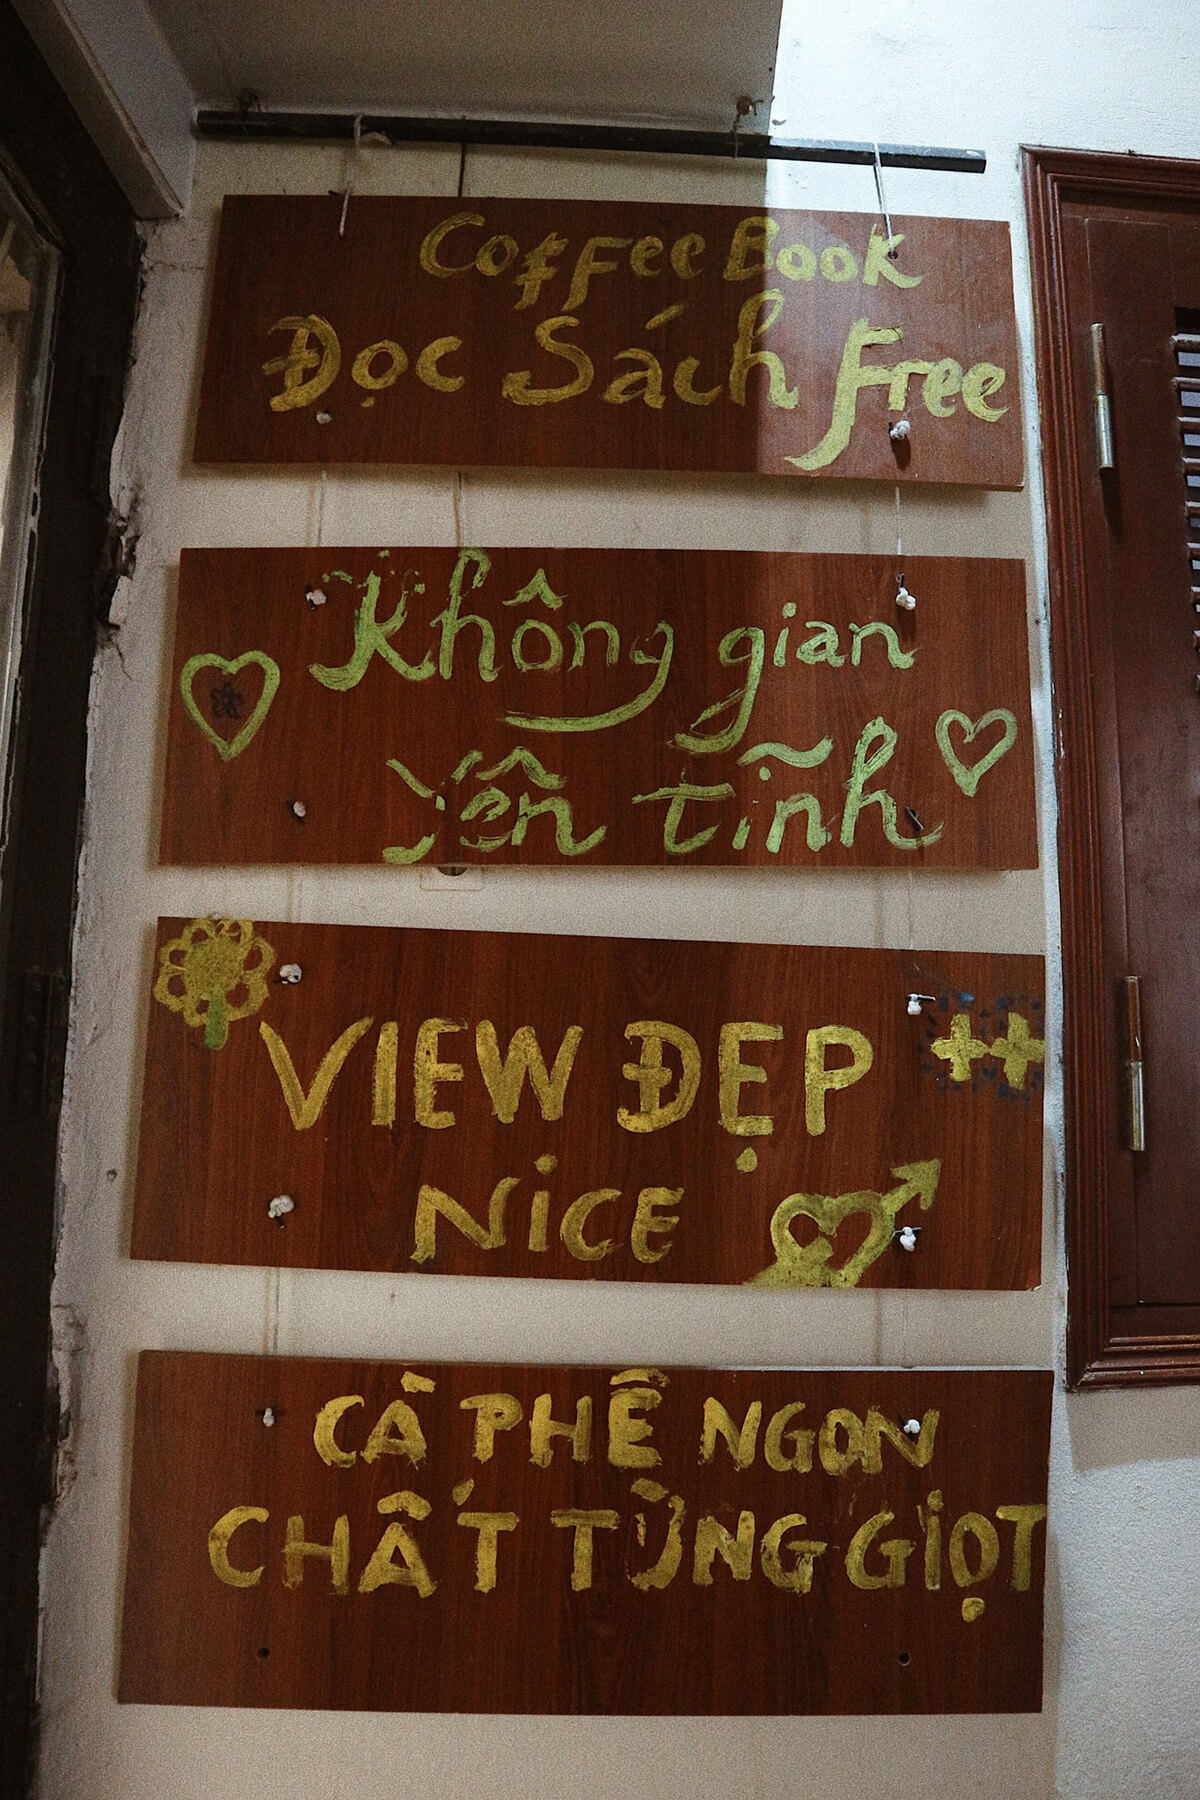 Coffee Book
Đọc Sách Free
Không gian
yên tĩnh
VIEW ĐẸP ++
NiCE
CÀ PHÊ NGON
CHẤT TỪNG GIỌT